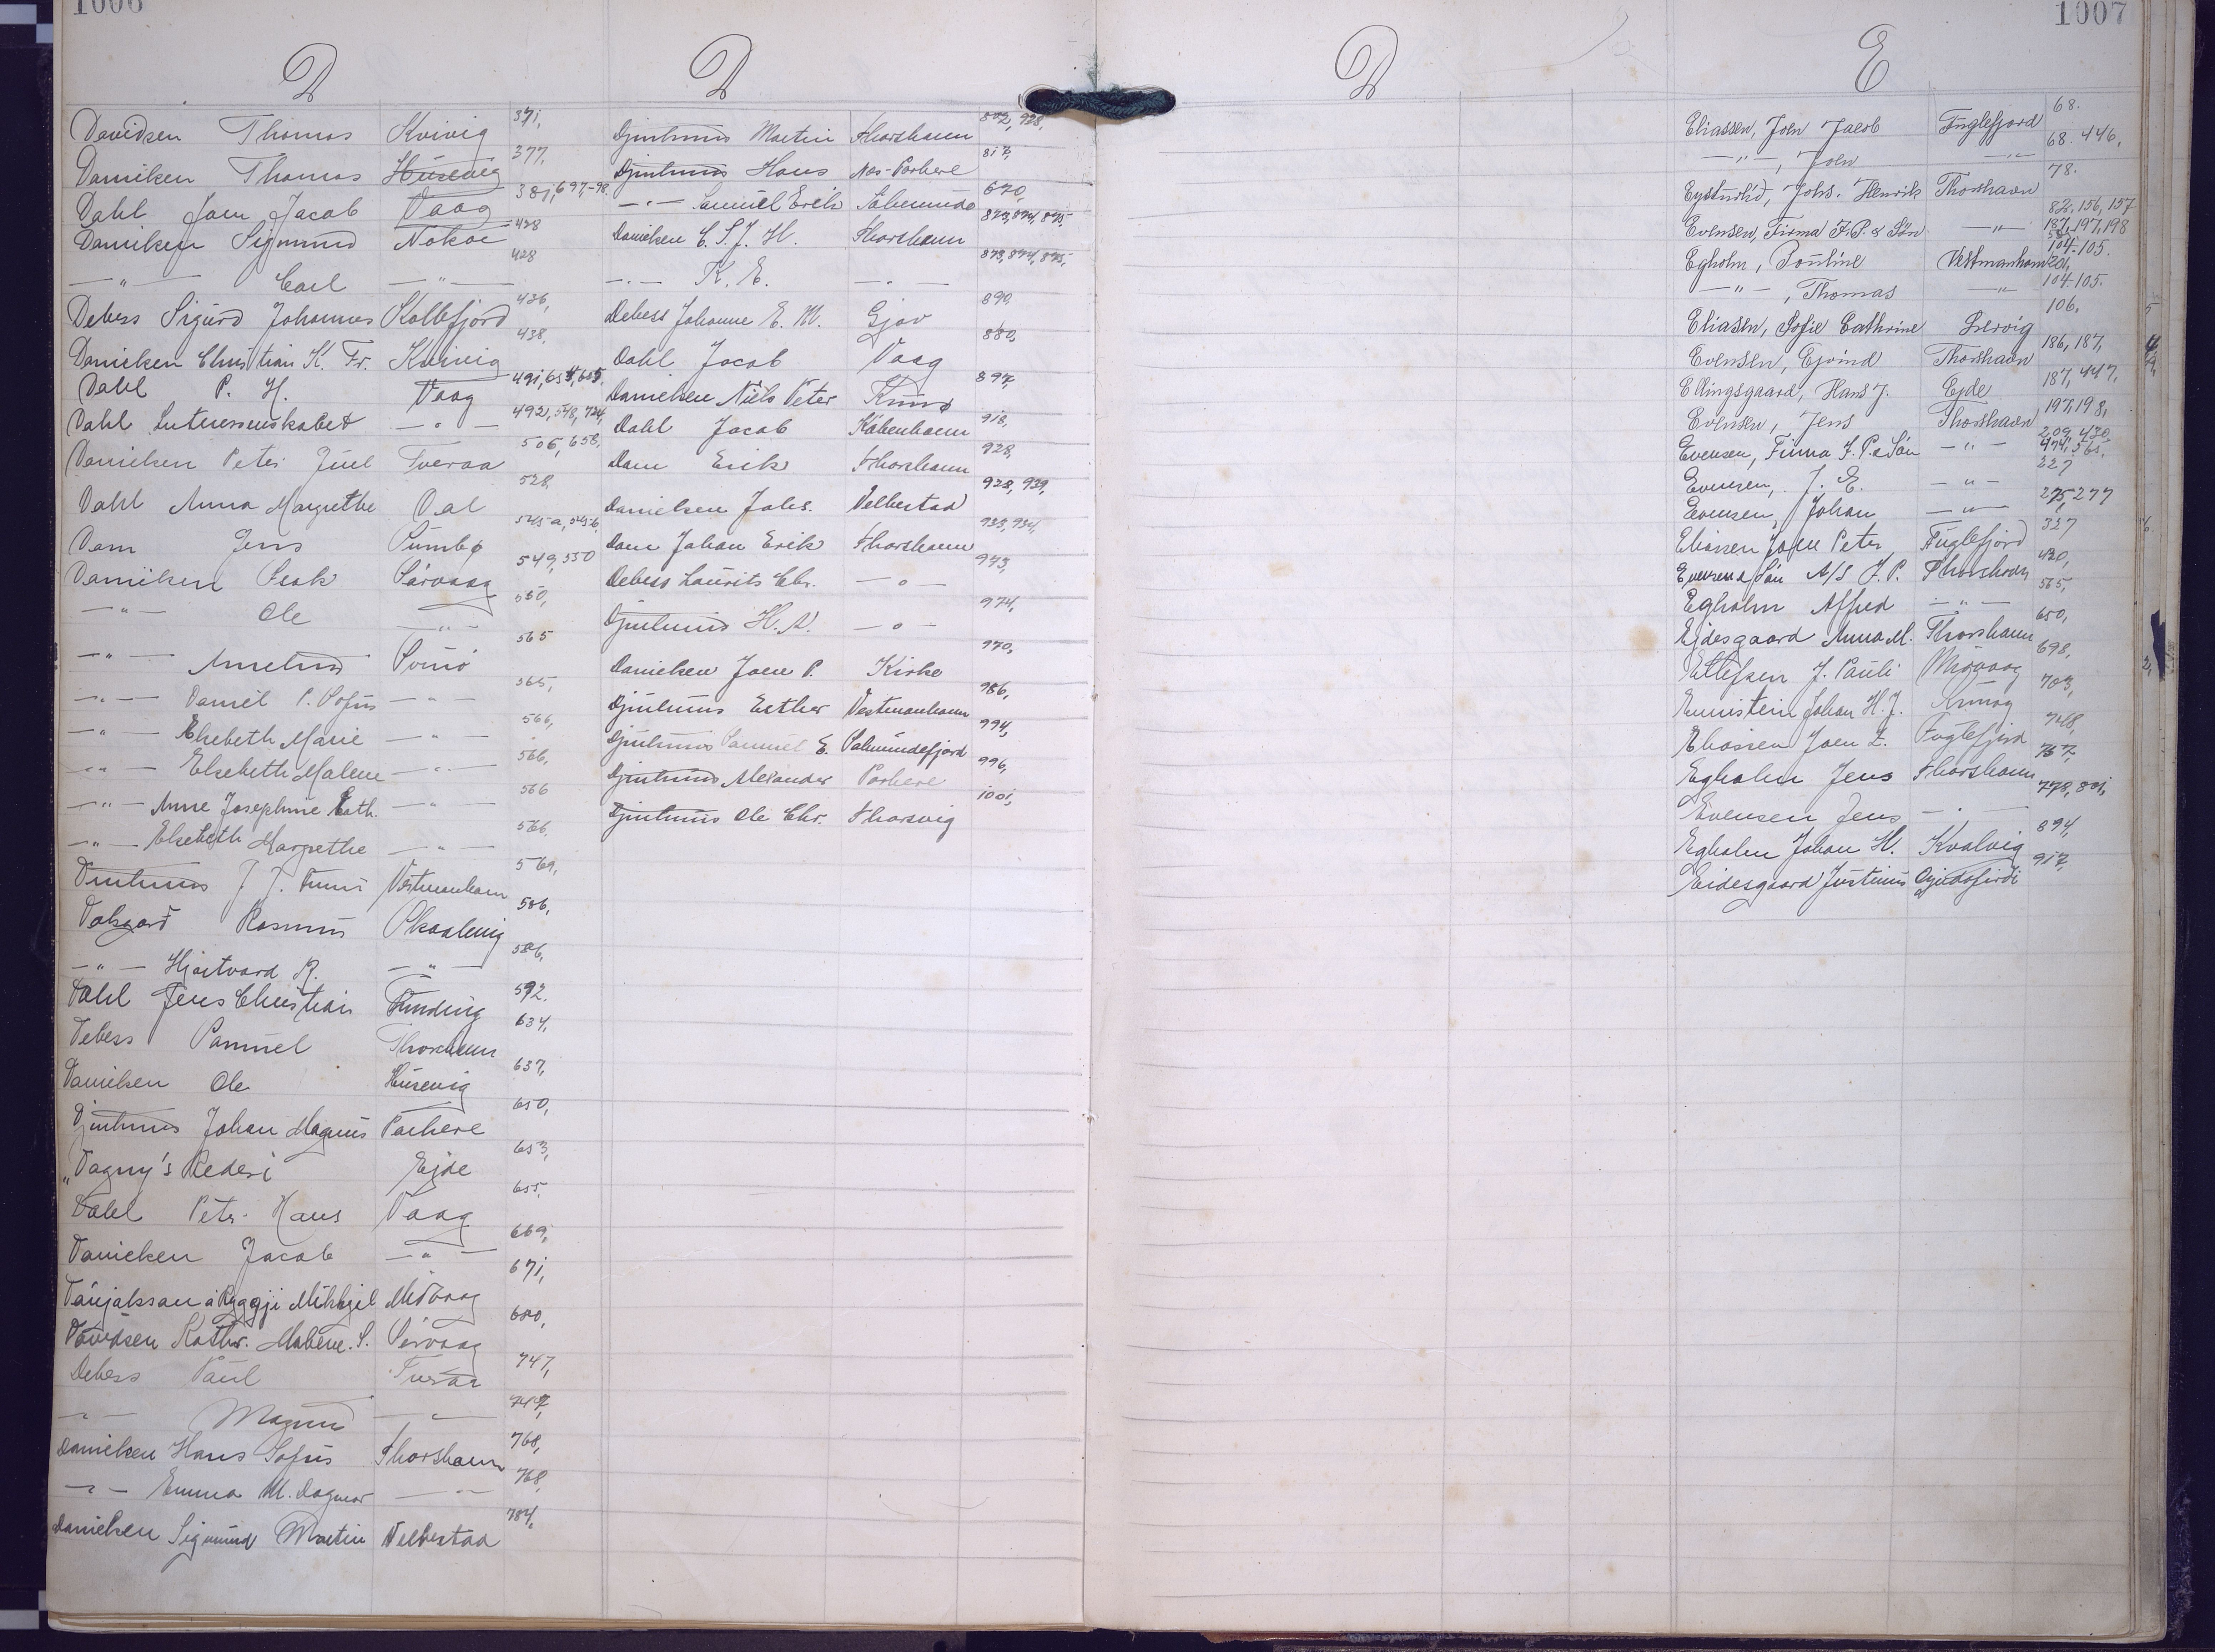 1006
D
Davidsen Thomas Kvivig 371,
Danielsen Thomas Húsevig 377,
Dahl Joen Jacob Vaag 381, 697-98
Danielsen Sigmund Nolsoe 428
-"- Carl -"- 428
Debess Sigurd Johannes Kollefjord 436,
Danielsen Christian K. Fr. Kvivig 438,
Dahl P. H. Vaag 491, 654, 655,
Dahl Interessenskabet -"- 492, 548, 724,
Danielsen Peter Juel Tveraa 506, 658,
Dahl Anna Margrethe Dal 528,
Dam Jens Pumbø 545-a, 545-b,
Danielsen Isak Sörvaag 549, 550
-"- Ole -"- 550,
-"- Amelund Svinö 565
-"- Daniel P. Sofus -"- 565,
-"- Elsebeth Marie -"- 566,
-"- Elsebeth Malene -"- 566,
-"- Anne Josephine Cath. -"- 566
-"- Elsebeth Margrethe -"- 566.
J. J. Vestmanhavn 569,
Dalsgard Rasmus Skaalevig 586,
-"- Hjartvard R. -"- 586,
Dahl Jens Christian Funding 592.
Debess Samuel Thorshavn 634,
Danielsen Ole Húsevig 637,
Djurhuus Johan Magnus Porkere 650,
"Dagny's Rederi Ejde 653,
Dahl Petr. Hans Vaag 655,
Danielsen Jacob -"- 669,
Dánjalsson á Ryggji Mikkjal Midvaag 671,
Davidsen Kathr. Malene. S. Sörvaag 680,
Debess Paul Tveraa 747,
-"- Magnus -"- 747,
Danielsen Hans Sofus Thorshavn 768,
-"- Emma M. Dagmar -"- 768,
Danielsen Sigmund Martin Velbestad 784,
D
Djurhuus Martin Thorshavn 802, 928,
Djurhuus Hans Nes-Porkere 817,
-"- Samuel Erik Salmunde 670,
Danielsen C. S. J. H. Thorshavn 873, 874, 875,
-"- K. E. -"- 873, 874, 875,
Debess Johanne E. M. Gjov 899
Dahl Jacob Vaag 880,
Danielsen Niels Peter Kunø 897,
Dahl Jacob Köbenhavn 918,
Dam Erik Thorshavn 928,
Danielsen Johs. Velbestad 928, 929,
Dam Johan Erik Thorshavn 933, 934,
Debess Laurits Chr. -"- 943,
Djurhuus H. D. -"- 974,
Danielsen Joen P. Kirke 970,
Djurhuus Esther Vestmanhavn 986,
Djurhuus Samuel E. Salmundefjord 994,
Djurhuus Alexander Porkere 996,
Djurhuus Ole Chr. Thorsvig 1001,
D
1007
E
Eliassen, Joen Jacob Fuglefjord 68.
-"-, Joen -"- 68. 446,
Eysturlid, Johs. Henrik Thorshavn 78.
Evensen, Firma J. P. & Søn -"- 82, 156, 157 187, 197, 198
Egholm, Pouline Vestmanhavn 104-105.
-"-, Thomas -"- 104-105.
Eliasen, Sofie Cathrine Lervig 106,
Evensen, Ejvind Thorshavn 186, 187,
Ellingsgaard, Hans J. Ejde 187, 447,
Evensen, Jens Thorshavn 197, 198,
Evensen, Firma J. P. & Søn -"- 209, 430, 474, 565,
Evensen, J. E. -"- 227
Evensen, Johan -"- 275, 277
Eliassen Joen Peter Fuglefjord 337
Evensen & Søn A/S J. P. Thorshavn 420,
Egholm Alfred -"- 565,
Ejdesgaard Anna M. Thorshavn 650,
Ellefsen J. Pauli Midvaag 698,
Johan H. J. 703,
Eliassen Joen Z. Fuglefjord 748,
Egholm Jens Thorshavn 757,
Evensen Jens -"- 778, 801,
Egholm Johan H. Kvalvig 894,
Eidesgaard Justinus Oyndafirdi 917,